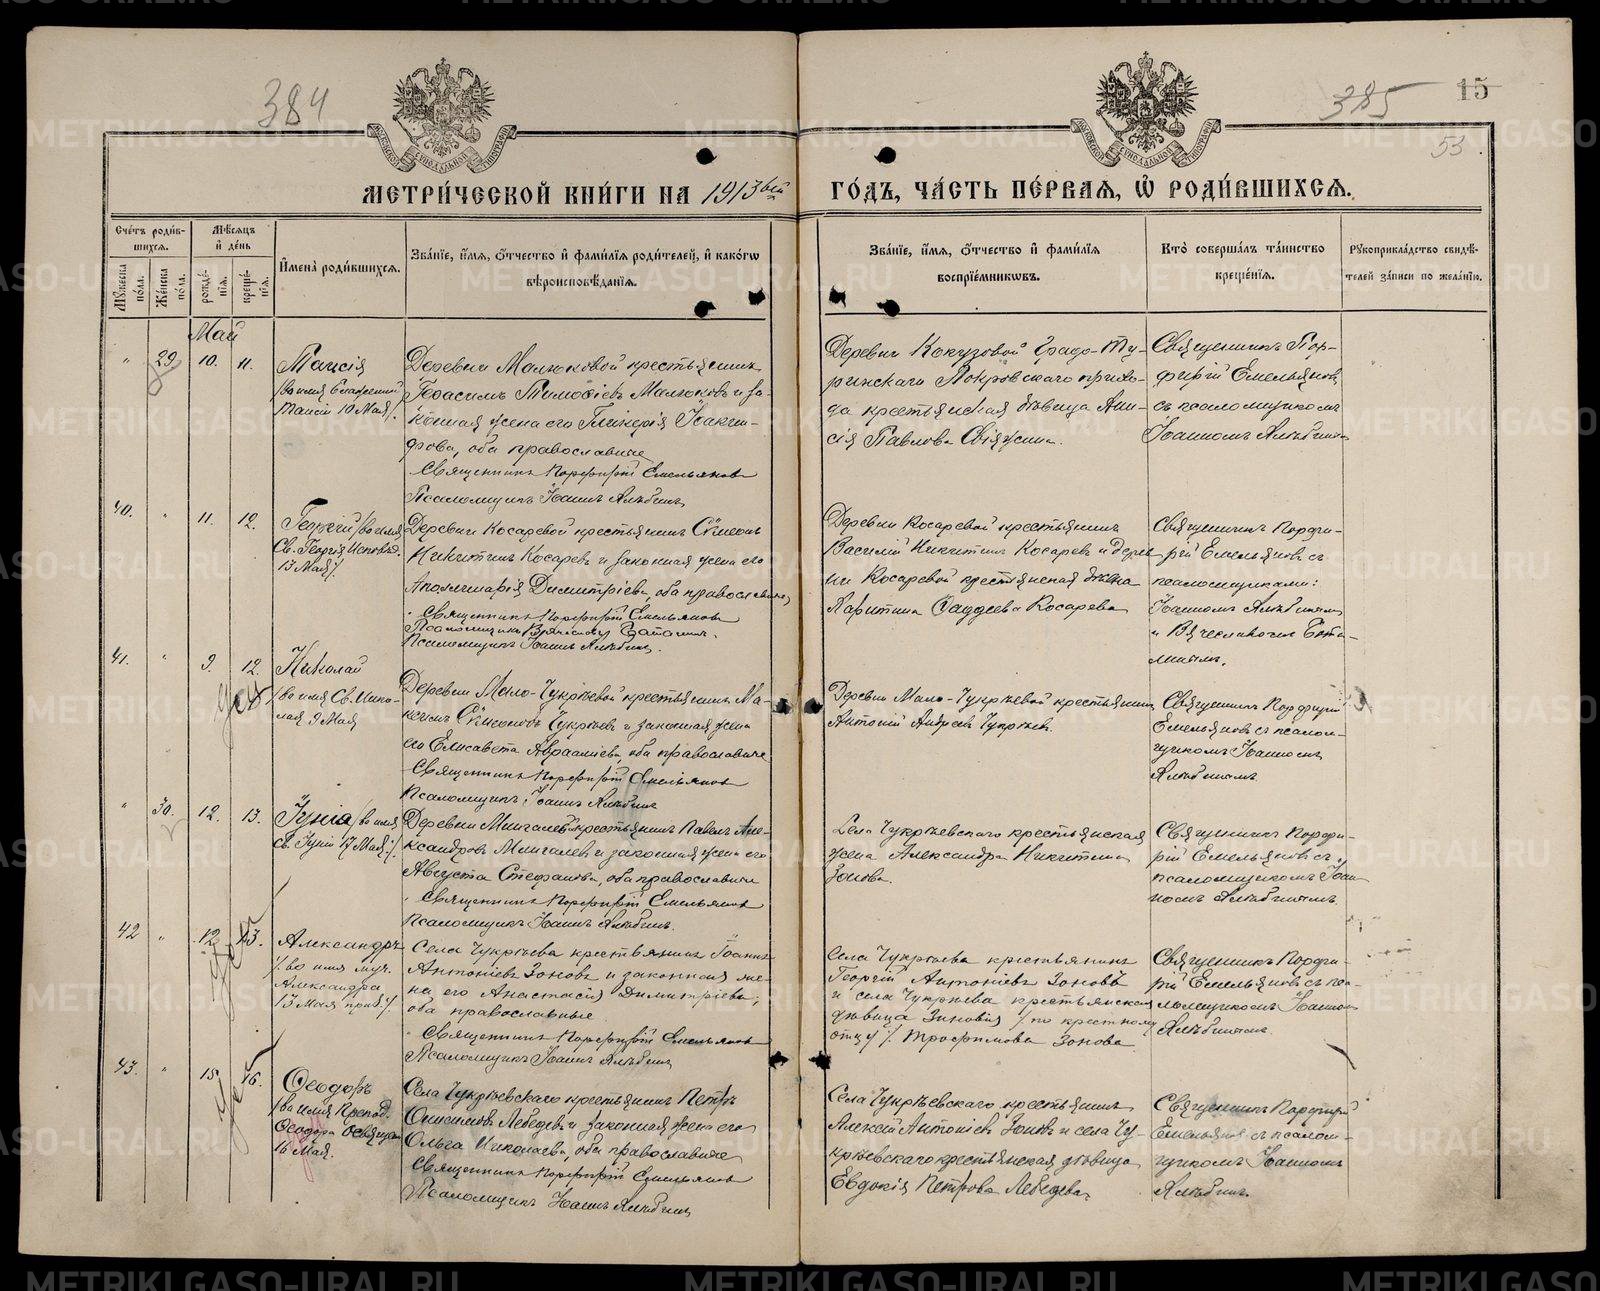 384
385
15
53
МЕТРИ́ЧЕСКОЙ КНИ́ГИ НА 1913ый ГО́ДЪ, ЧА́СТЬ ПЕ́РВАѦ, Ѡ҆ РОДИ́ВШИХСѦ.
Сче́тъ роди́в-
шихсѧ.
Мꙋ́жеска
по́ла.
Же́нска
по́ла.
Мѣ́сѧцъ
и҆ де́нь
рожде́-
нїѧ.
креще́-
нїѧ.
И҆мена̀ роди́вшихсѧ.
Зва́нїе, и҆́мѧ, ѻ҆́тчество и҆ фами́лїѧ роди́телей, и҆ како́гѡ
вѣроисповѣ́данїѧ.
Зва́нїе, и҆́мѧ, ѻ҆́тчество и҆ фами́лїѧ
воспрїе́мникѡвъ.
Кто̀ соверша́лъ та́инство
креще́нїѧ.
Рꙋкоприкла́дство свидѣ́-
телей за́писи по жела́нїю.
Май
" 29. 10. 11.
Таисія
/во имя Блаженной
Таисіи 10 Мая/.
Деревни Малюковой крестьянинъ
Герасимъ Тимоѳіевъ Малюковъ и за-
конная жена его Гликерія Іоакин-
фова, оба православные
Священникъ Порфирій Емельяновъ
Псаломщикъ Іоаннъ
Деревни Кокузовой Градо-Ту-
ринскаго Покровскаго прихо-
да крестьянская дѣвица Ани-
сія Павлова
Священникъ Пор-
фирій Емельяновъ
съ псаломщикомъ
Іоанномъ
40. " 11. 12.
Георгій /во имя
Св. Георгія Исповѣд.
13 Мая/.
Деревни Косаревой крестьянинъ Сѵмеонъ
Никитинъ Косаревъ и законная жена его
Аполлинарія Димитріева, оба православные,
Священникъ Порфирій Емельяновъ
Псаломщикъ Вячеславъ
Псаломщикъ Іоаннъ
Деревни Косаревой крестьянинъ
Василій Никитинъ Косаревъ и дерев-
ни Косаревой крестьянская дѣвица
Харитина Косарева
Священникъ Порфи-
рій Емельяновъ съ
псаломщиками:
Іоанномъ
и Вячеславомъ
41. " 9. 12.
Николай
/во имя Св. Нико-
лая 9 Мая
Деревни Мало-Чукрѣевой крестьянинъ Ма-
Сѵмеоновъ Чукрѣевъ и законная жена
его Елисавета Авраамiева, оба православные
Священникъ Порфирій Емельяновъ
Псаломщикъ Іоаннъ
Деревни Мало-Чукрѣевой крестьянинъ
Антоній Андреевъ Чукрѣевъ.
Священникъ Порфирій
Емельяновъ съ псалом-
щикомъ Іоанномъ
" 30. 12. 13.
Іунія /во имя
Св. Іуніи 17 Мая/.
Деревни Мингалевой крестьянинъ Павелъ Але-
ксандровъ Мингалевъ и законная жена его
Августа Стефанова, оба православные
Священникъ Порфирій Емельяновъ
Псаломщикъ Іоаннъ
Села Чукрѣевскаго крестьянская
жена Александра Никитина
Зонова.
Священникъ Порфи-
рій Емельяновъ съ
псаломщикомъ Іоан-
номъ
42 " 12. 13.
Александръ
/во имя муч.
Александра
13 Мая празд./.
Села Чукрѣева крестьянинъ Іоаннъ
Антоніевъ Зоновъ и законная же-
на его Анастасія Димитріева,
оба православные
Священникъ Порфирій Емельяновъ
Псаломщикъ Іоаннъ
Села Чукрѣева крестьянинъ
Георгій Антоніевъ Зоновъ
и села Чукрѣева крестьянская
дѣвица Зиновія /по крестному
отцу/. Трофимова Зонова
Священникъ Порфи-
рій Емельяновъ съ пса-
ломщикомъ Іоанномъ
43. " 15. 16.
Ѳеодоръ
/во имя Препод.
Ѳеодора Освящен.
16 Мая.
Села Чукрѣевскаго крестьянинъ Петръ
Онисимовъ Лебедевъ и законная жена его
Ольга Николаева, оба православные
Священникъ Порфирій Емельяновъ
Псаломщикъ Іоаннъ
Села Чукрѣевскаго крестьянинъ
Алексій Антоніевъ Зоновъ и села Чу-
крѣевскаго крестьянская дѣвица
Евдокія Петрова Лебедева.
Священникъ Порфирій
Емельяновъ съ псалом-
щикомъ Іоанномъ
METRIKI.GASO-URAL.RU